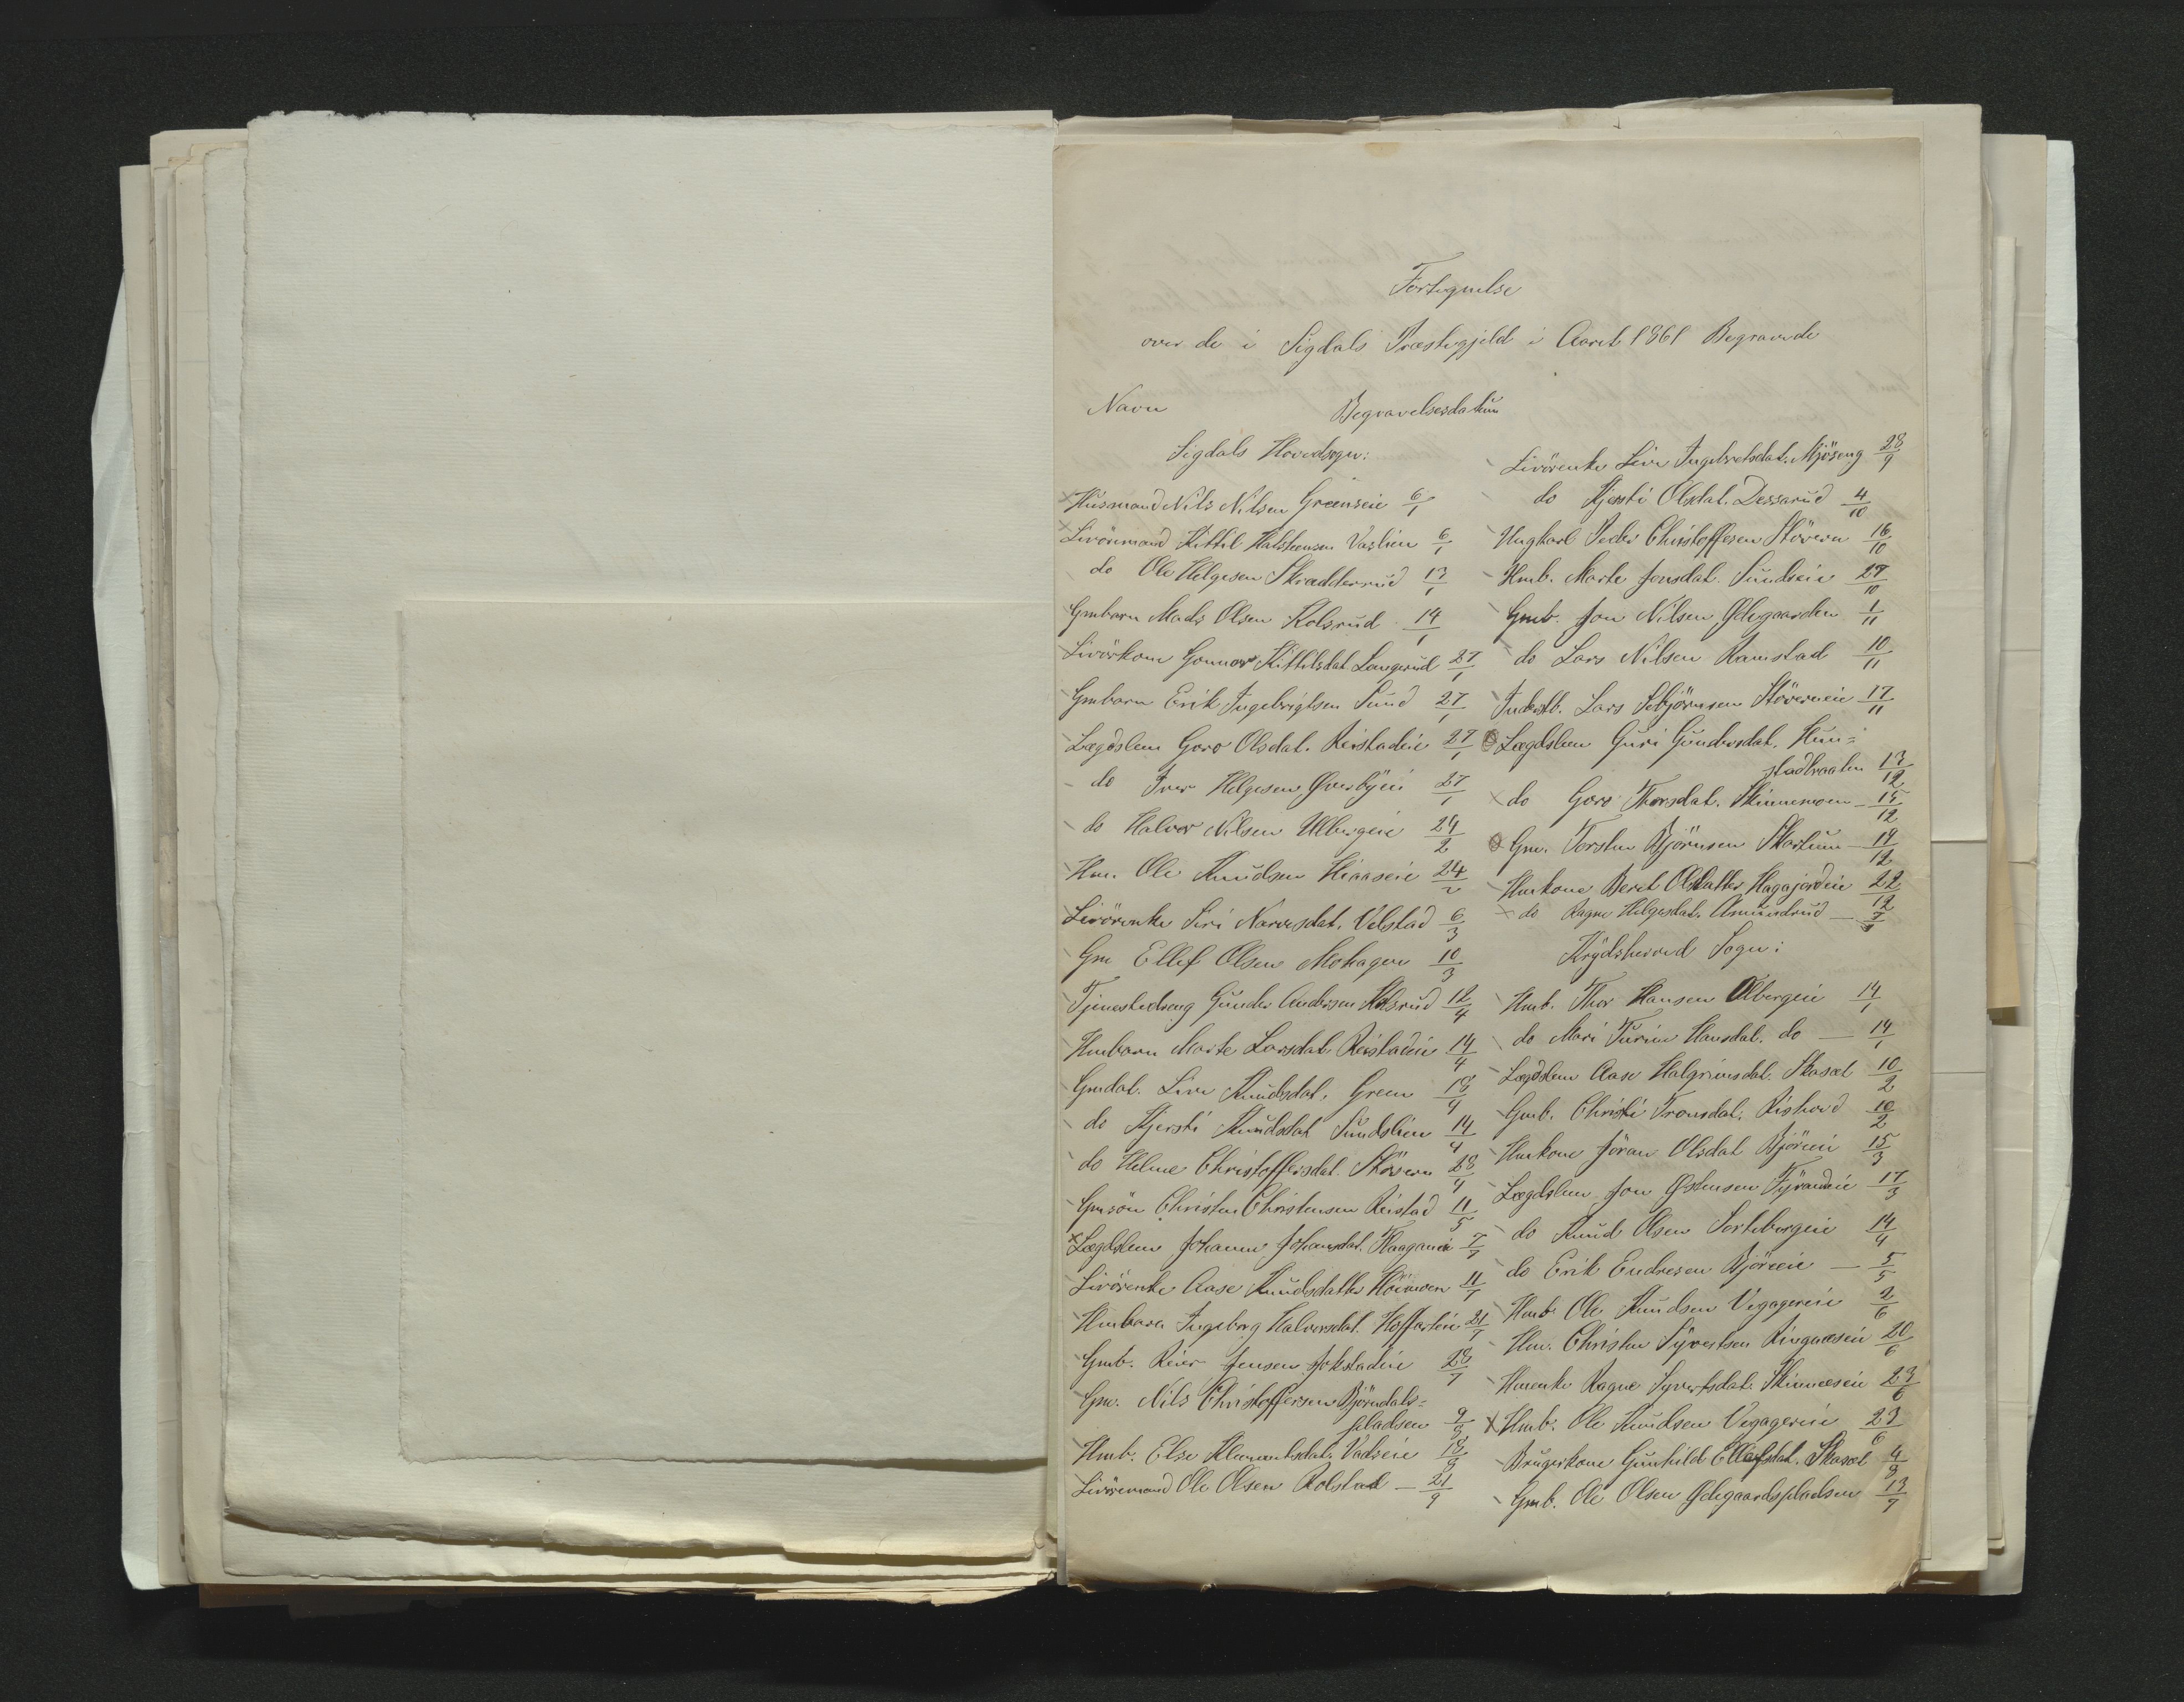 Fortegnelse
over de i Sigdals Præstegjeld i Aaret 1861 Begravede
Navn Begravelsesdatum
Sigdals Hovedsogn:
Husmand Nils Nilsen Greenseie 6/1
Livöremand Kittil Halsteensen Vaslien 6/1
do Ole Helgesen Skrædderrud 13/1
Gmbarn Mads Olsen Kolsrud 14/1
Livörkone Gunnor Kittilsdat. Langerud 27/1
Gmbarn Erik Ingebrigtsen Sund 27/1
Lægdslem Goro Olsdat. Reistadeie 27/1
do Iver Helgesen Øverbyeie 27/1
do Halvor Nilsen Ulbergeie 24/2
Hm. Ole Knudsen Hiaaseie 24/2
Livörenke Siri Narvesdat. Velstad 6/3
Gm Ellef Olsen Mohagen 10/3
Tjenestedreng Gunder Andersen Kolsrud 12/4
Hmbarn Marte Larsdat. Reistadeie 14/4
Gmdat. Live Knudsdat. Green 18/4
do Kjersti Knudsdat Sundslien 14/4
do Helene Christoffersdat. Støvern 28/4
Gmsön Christen Christensen Reistad 11/5
Lægdslem Johanne Johansdat. Haaganeie 7/7
Livörenke Aase Knudsdatter Höimoen 11/7
Hmbarn Ingeborg Halvorsdat. Hoffarteie 21/7
Gmb. Reier Jensen Jokstadeie 28/7
Gm. Nils Christoffersen Bjørndals-
pladsen 9/8
Hmb. Else Klemmetsdat. Vadseie 18/8
Livöremand Ole Olsen Rolstad — 21/9
Livörenke Live Ingebretsdat. Mjöseng 28/9
do Kjersti Olsdat. Dessarud 4/10
Ungkarl Peder Christoffersen Støvern 16/10
Hmb. Marte Jonsdat. Sundseie 27/10
Gmb. Jon Nilsen Ødegaarden 1/11
do Lars Nilsen Ramstad 10/11
Inderstb. Lars Asbjörnsen Støverneie 17/11
Lægdslem Guri Gundersdat. Hun-
stadbraaten 13/12
do Goro Thorsdat. Skinnemoen — 15/12
Gm. Torsten Bjørnsen Skartum — 19/12
Hmkone Berit Olsdatter Hagajordeie 22/12
do Ragne Helgesdat. Amundrud —
Krydsherred Sogn:
Hmb. Thor Hansen Olbergeie 14/1
do Mari Turine Hansdat. do — 14/1
Lægdslem Aase Halgrimsdat. Skasæt 10/2
Gmb. Christi Tronsdat. Rishovd 10/2
Hmkone Jöran Olsdat Björeeie 15/3
Lægdslem Jon Østensen Fyrandeie 17/3
do Knud Olsen Sortebergeie 14/4
do Erik Endresen Björeeie — 5/5
Hmb. Ole Knudsen Vegagereie 2/6
Hm. Christen Syvertsen Ringnæseie 20/6
Hmenke Ragne Syvertsdat. Skinnæseie 23/6
Hmb. Ole Knudsen Vegagereie 23/6
Brugerkone Gunhild Ellefsdat. Skasæt 4/8
Gmb. Ole Olsen Ødegaardspladsen 13/7